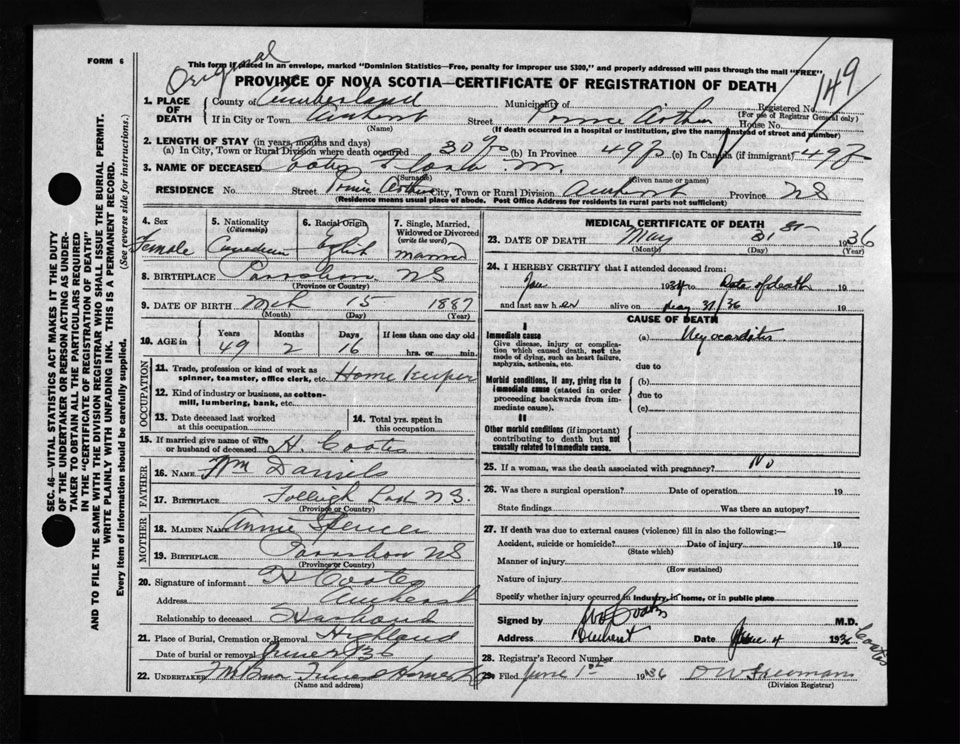 FORM 6
Original
This form if placed in an envelope, marked "Dominion Statistics—Free, penalty for improper use $300," and properly addressed will pass through the mail "FREE"
PROVINCE OF NOVA SCOTIA—CERTIFICATE OF REGISTRATION OF DEATH
149
1. PLACE OF DEATH
County of Cumberland Municipality of Registered No.
(For use of Registrar General only)
If in City or Town Amherst Street Prince Arthur House No.
(Name) (If death occurred in a hospital or institution, give the name instead of street and number)
2. LENGTH OF STAY (in years, months and days)
(a) In City, Town or Rural Division where death occurred 30 (b) In Province 49 (c) In Canada (if immigrant) 49
3. NAME OF DECEASED Coates M.
(Surname) (Given name or names)
RESIDENCE No. Street Prince Arthur City, Town or Rural Division Amherst Province NS
(Residence means usual place of abode. Post Office Address for residents in rural parts not sufficient)
4. Sex Female
5. Nationality (Citizenship) Canadian
6. Racial Origin English
7. Single, Married, Widowed or Divorced (write the word) married
8. BIRTHPLACE NS
(Province or Country)
9. DATE OF BIRTH Mch 15 1887
(Month) (Day) (Year)
10. AGE in Years 49 Months 2 Days 16 If less than one day old hrs. or min.
OCCUPATION
11. Trade, profession or kind of work as spinner, teamster, office clerk, etc. Home Keeper
12. Kind of industry or business, as cotton-mill, lumbering, bank, etc.
13. Date deceased last worked at this occupation
14. Total yrs. spent in this occupation
15. If married give name of wife or husband of deceased H. Coates
FATHER
16. NAME Wm Daniels
17. BIRTHPLACE N.S.
(Province or Country)
MOTHER
18. MAIDEN NAME Annie Spencer
19. BIRTHPLACE Parrsboro NS
(Province or Country)
20. Signature of informant H Coates
Address Amherst
Relationship to deceased Husband
21. Place of Burial, Cremation or Removal Highland
Date of burial or removal June 36
22. UNDERTAKER Funeral Home
(Name and address)
MEDICAL CERTIFICATE OF DEATH
23. DATE OF DEATH May 31st 1936
(Month) (Day) (Year)
24. I HEREBY CERTIFY that I attended deceased from:
Jan 1934 to Date of death 19
and last saw her alive on May 31/36 19
CAUSE OF DEATH
I
Immediate cause
Give disease, injury or complication which caused death, not the mode of dying, such as heart failure, asphyxia, asthenia, etc.
(a) Myocarditis
due to
Morbid conditions, if any, giving rise to immediate cause (stated in order proceeding backwards from immediate cause).
(b)
due to
(c)
II
Other morbid conditions (if important) contributing to death but not causally related to immediate cause.
25. If a woman, was the death associated with pregnancy? No
26. Was there a surgical operation? Date of operation 19
State findings Was there an autopsy?
27. If death was due to external causes (violence) fill in also the following:—
Accident, suicide or homicide? Date of injury 19
(State which)
Manner of injury
(How sustained)
Nature of injury
Specify whether injury occurred in industry, in home, or in public place
Signed by Coates M.D.
Address Amherst Date June 4 1936
Coates
28. Registrar's Record Number
29. Filed June 1st 1936
(Division Registrar)
SEC. 46—VITAL STATISTICS ACT MAKES IT THE DUTY
OF THE UNDERTAKER OR PERSON ACTING AS UNDER-
TAKER TO OBTAIN ALL THE PARTICULARS REQUIRED
IN THE "CERTIFICATE OF REGISTRATION OF DEATH"
AND TO FILE THE SAME WITH THE DIVISION REGISTRAR WHO SHALL ISSUE THE BURIAL PERMIT.
WRITE PLAINLY WITH UNFADING INK. THIS IS A PERMANENT RECORD.
Every item of information should be carefully supplied. (See reverse side for instructions.)